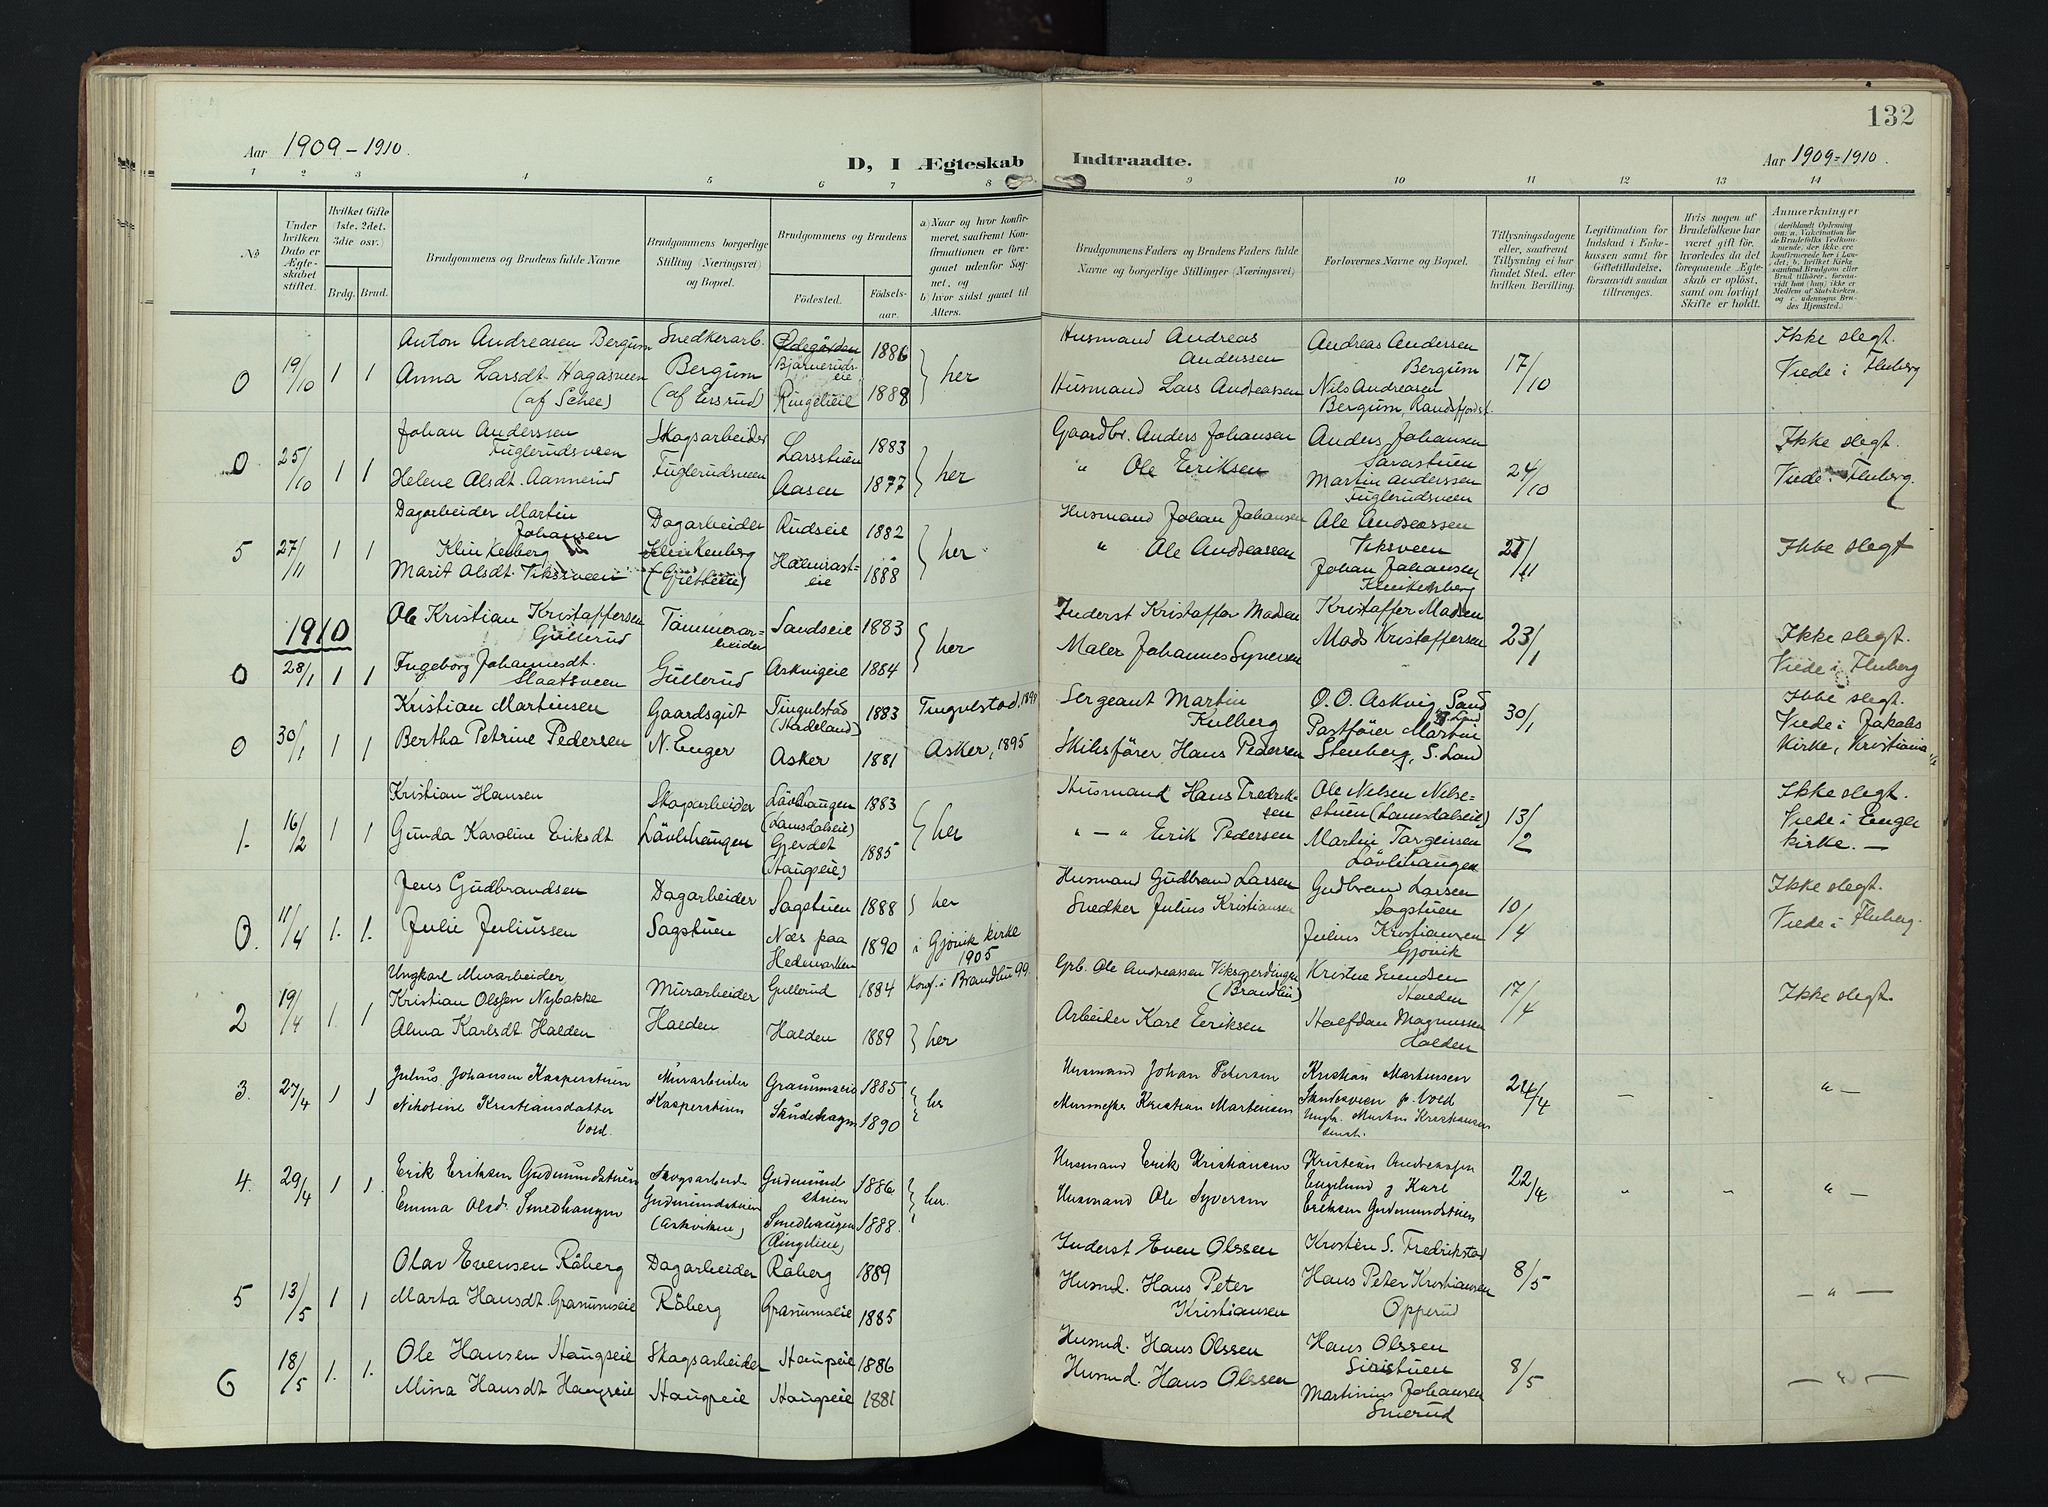 132
Aar 1909-1910.
D, I Ægteskab Indtraadte.
Aar 1909-1910.
1 2 3 4 5 6 7 8 9 10 11 12 13 14
No
Under hvilken Dato er Ægteskabet stiftet.
Hvilket Gifte (1ste, 2det, 3die osv.)
Brdg. Brud.
Brudgommens og Brudens fulde Navne
Brudgommens borgerlige Stilling (Næringsvei) og Bopæl.
Brudgommens og Brudens
Fødested. Fødselsaar.
a) Naar og hvor konfirmeret, saafremt Konfirmationen er foregaaet udenfor Sognet, og b) hvor sidst gaaet til Alters.
Brudgommens Faders og Brudens Faders fulde Navne og borgerlige Stillinger (Næringsvei)
Forlovernes Navne og Bopæl.
Tillysningsdagene eller, saafremt Tillysning ei har fundet Sted, efter hvilken Bevilling.
Legitimation for Indskud i Enkekassen samt for Giftetilladelse, forsaavidt saadan tiltrænges.
Hvis nogen af Brudefolkene har været gift før, hvorledes da det foregaaende Ægteskab er opløst, samt om lovligt Skifte er holdt.
Anmærkninger
0 19/10 1 1 Anton Andreasen Bergum Snedkerarb. Bjørnerudseie 1886 } her Husmand Andreas Anderssen Andreas Andersen Bergum 17/10 Ikke slegt.
Anna Larsdt. Hagasveen (af Schee) Bergum (af Ersrud) Ringelieie 1888 Husmand Lars Andreassen Nils Andreasen Bergum, Randsfjordst. Viede i Fluberg
0 25/10 1 1 Johan Anderssen Fuglerudsveen Skogsarbeider Larsstuen 1883 } her Gaardbr. Anders Johansen Anders Johansen 24/10 Ikke slegt.
Helene Olsdt. Aannerud Fuglerudsveen Aasen 1877 " Ole Eriksen Martin Anderssen Fuglerudsveen Viede i Fluberg.
5 27/11 1 1 Dagarbeider Martin Johansen Klinkenberg Dagarbeider Rudseie 1882 } her Husmand Johan Johansen Ole Andreassen Viksveen 21/11 Ikke slegt
Marit Olsdt. Viksveen Klinkenberg 1888 " Ole Andreasen Johan Johansen Klinkenberg
1910
0 28/1 1 1 Ole Kristian Kristoffersen Gullerud Tømmerarbeider Sandseie 1883 } her Inderst Kristoffer Madsen Kristoffer Madsen 23/1 Ikke slegt.
Ingeborg Johannesdt. Slaatsveen Gullerud Askvigeie 1884 Maler Johannes Syversen Mads Kristoffersen Viede i Fluberg
0 30/1 1 1 Kristian Martinsen Gaardsgut Tingelstad (Hadeland) 1883 Tingulstad, 1898 Sergeant Martin Kulberg O. O. Askvig, S. Land 30/1 Ikke slegt.
Bertha Petrine Pedersen N. Enger Asker 1881 Asker, 1895 Skibsfører Hans Pedersen Postfører Martin Stenberg, S. Land Viede i Jakobs Kirke, Kristiania
1. 16/2 1 1 Kristian Hansen Skogarbeider Løvlihaugen (Lomsdalseie) 1883 } her Husmand Hans Fredriksen Ole Nelsen Nilsestuen (Lomsdalseie) 13/2 Ikke slegt.
Gunda Karoline Eriksdt Løvlihaugen Gjerdet (Haugseie) 1885 " — " Erik Pedersen Martin Torgersen Løvlihaugen Viede i Enger kirke. —
0. 11/4 1. 1. Jens Gudbrandsen Dagarbeider Sagstuen 1888 } her Husmand Gudbrand Larsen Gudbrand Larsen Sagstuen 10/4 Ikke slegt.
Julie Juliussen Sagstuen Næs paa Hedmarken 1890 i Gjøvik kirke 1905 Snedker Julius Kristiansen Julius Kristiansen Gjøvik Viede i Fluberg.
2 19/4 1. 1 Ungkarl Murarbeider Kristian Olsen Nybakke Murarbeider Gullerud 1884 Konf. i Brandbu 99. Grb. Ole Andreassen Viksgjerdingen (Brandbu) Kristen Svendsen Halden 17/4 Ikke slegt.
Alma Karlsdt Halden Halden Halden 1889 } her Arbeider Karl Eriksen Halfdan Magnussen Halden
3. 27/4 1 1 Julius Johansen Kasperstuen Murarbeider Granumseie 1885 } her Husmand Johan Petersen Kristian Martinsen 24/4 " —
Nikoline Kristiansdatter Vold. Kasperstuen 1890 Murmester Kristian Martinsen
4. 29/4 1 1. Erik Eriksen Gudmundstuen Skogsarbeider Gudmundstuen 1886 } her. Husmand Erik Kristiansen Kristian Andreassen 22/4 " " " —
Emma Olsdt. Smedhaugen Gudmundstuen (Askvikeie) Smedhaugen (Ringelieie) 1888. Husmand Ole Syversen Englund og Karl Eriksen Gudmundstuen
5 13/5 1 1 Olav Evensen Røberg Dagarbeider Røberg 1889 Inderst Even Olssen Kristen S. Fredrikstad 8/5 — " —
Marta Hansdt. Granumseie Røberg Granumseie 1885 Husmd. Hans Peter Kristiansen Hans Peter Kristiansen Opperud
6 18/5 1. 1. Ole Hansen Haugseie Skogsarbeider Haugseie 1886 Husmd. Hans Olssen Hans Olssen Siristuen 8/5 — " —
Mina Hansdt Haugseie Haugseie Haugseie 1881 Husmd. Hans Olssen Martinius Johansen Smerud